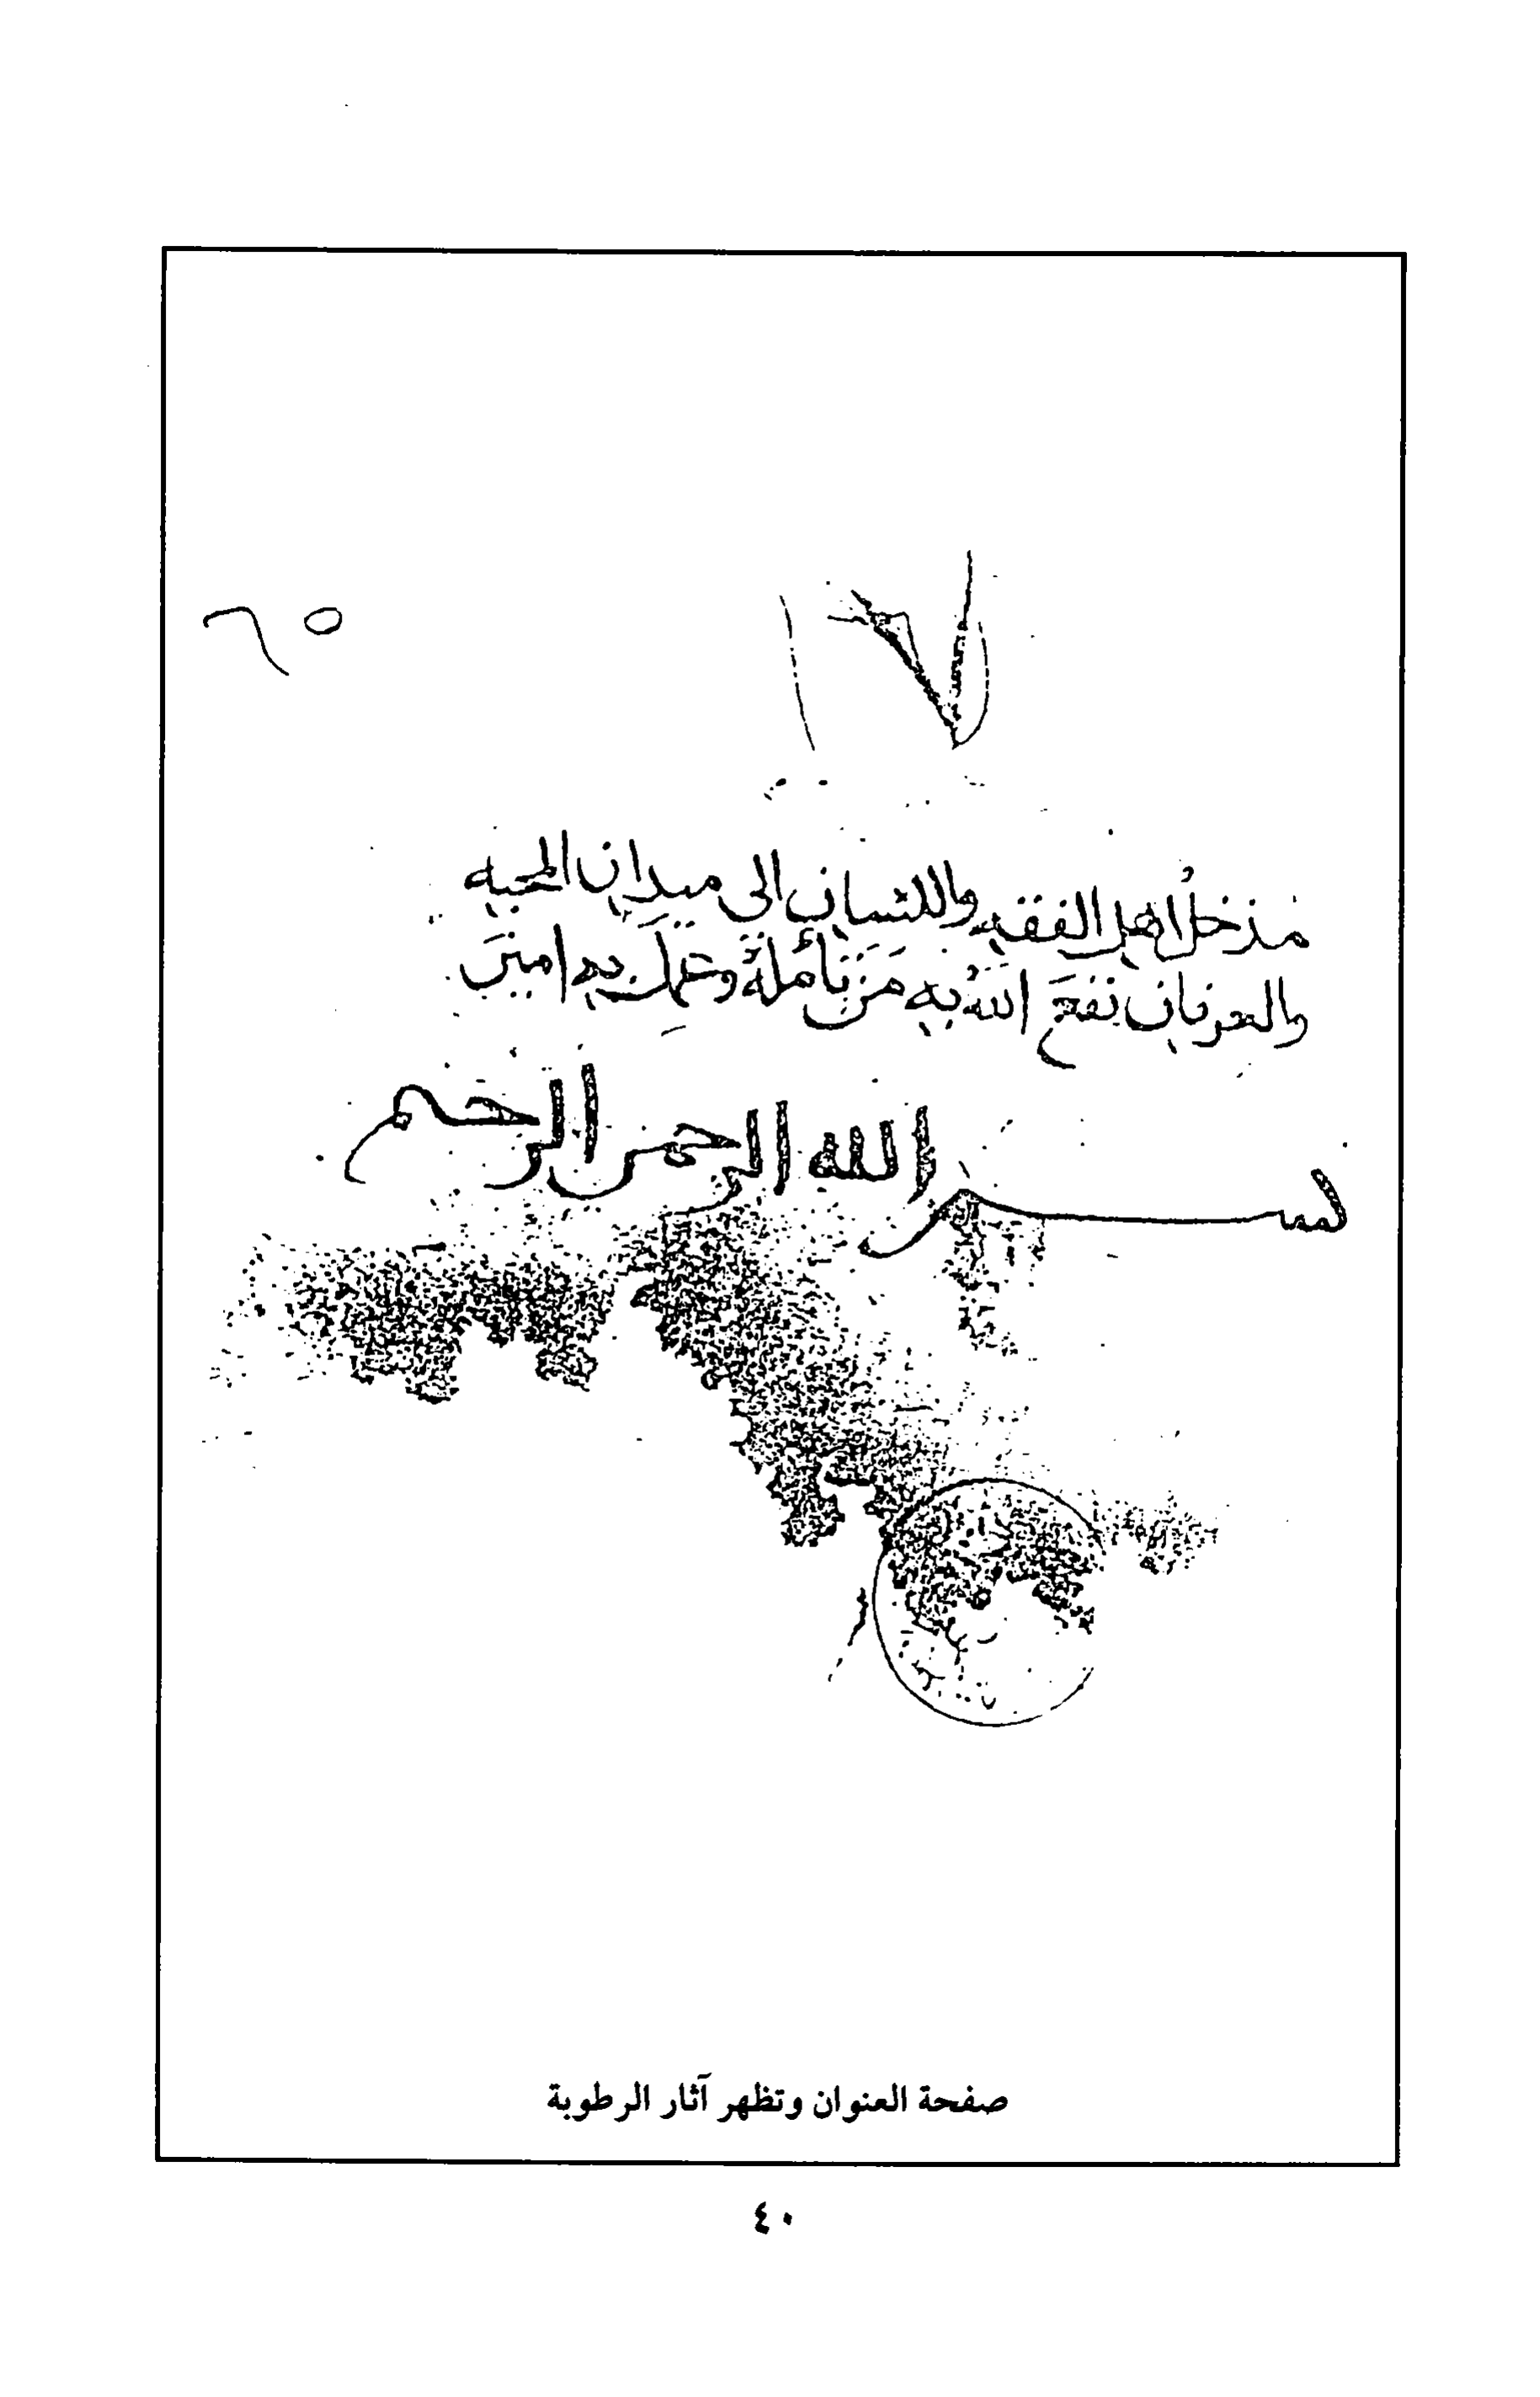 ٦٥
١٧
مدخل اهل الفقه واللسان الى ميدان المحبه
والعرفان نفع الله به من تأمله وعمل به امين
بسم الله الرحمن الرحيم
صفحة العنوان وتظهر آثار الرطوبة
٤٠